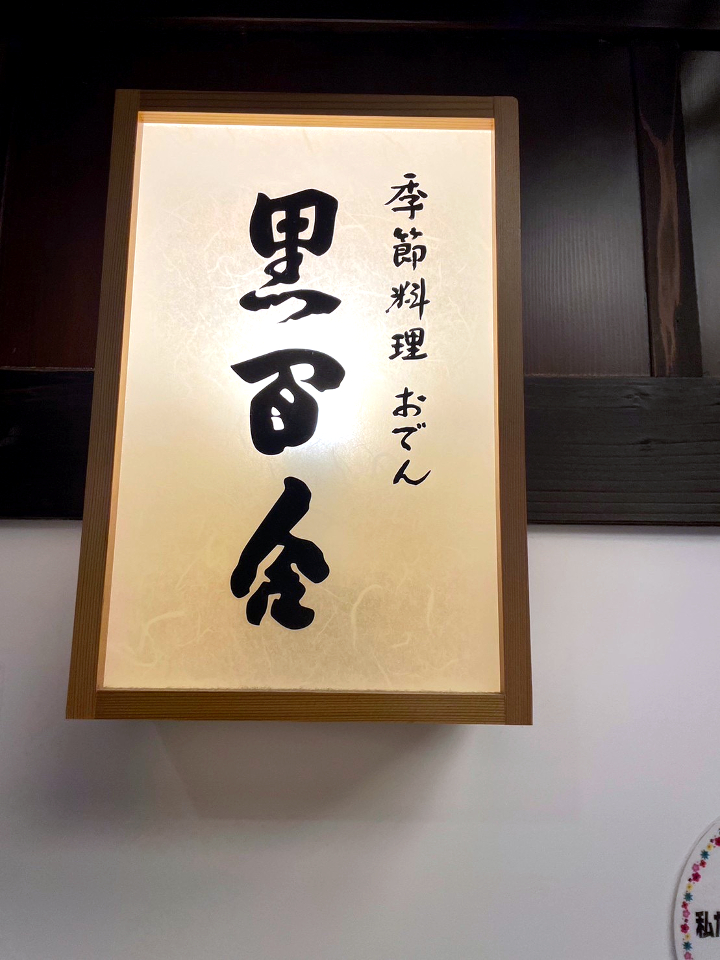 季節料理 おでん
黒百合
私